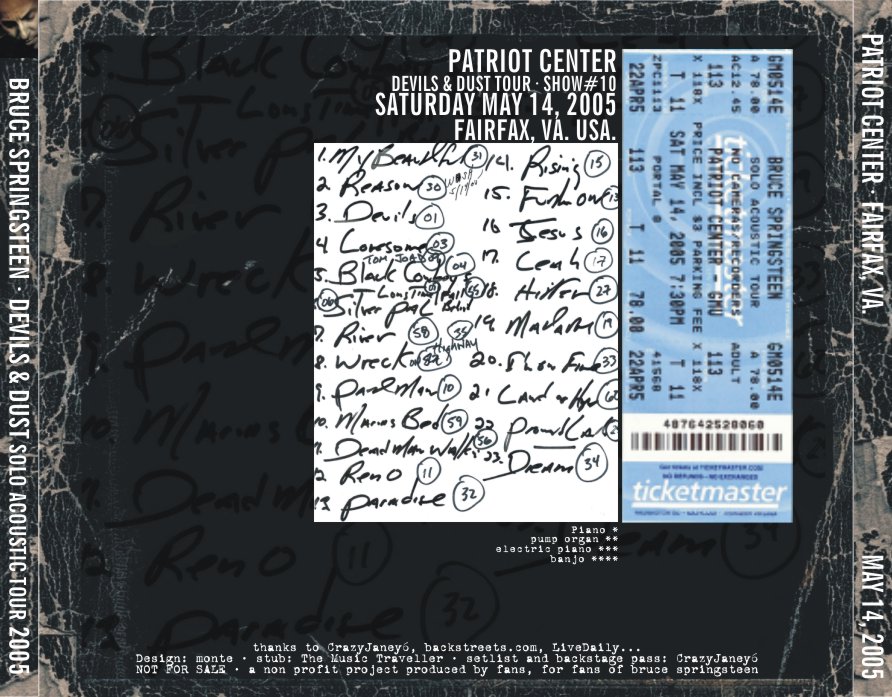 BRUCE SPRINGSTEEN · DEVILS & DUST SOLO ACOUSTIC TOUR 2005
PATRIOT CENTER
DEVILS & DUST TOUR · SHOW#10
SATURDAY MAY 14, 2005
FAIRFAX, VA. USA.
1. My Beautiful 31
2. Reason 30
3. Devils 01
4 Lonesome 03
TOM JOAD
5. Black Cowboys 04
Long Time
06 Silver Pal
7. River 58 35
HIGHWAY
8. Wreck on
9. Part Man 10
10. Marias Bed 59
11. Dead Man Walkin 56
12 Reno 11
13 Paradise 32
14. Rising 15
15. Further On
16 Jesus 16
17. Leah 17
18. Hitter 27
19. Matamo 19
20. Shon Fine 33
21. Land of Hope
22 Promised Land
23. Dream 34
GM0514E BRUCE SPRINGSTEEN GM0514E
A 78.00 SOLO ACOUSTIC TOUR A 78.00
AC12.45 NO CAMERAS/RECORDERS ADULT
113 PATRIOT CENTER - GMU 113
X 118X PRICE INCL $3 PARKING FEE X 118X
T 11 SAT MAY 14, 2005 7:30PM T 11
ZPC2113 PORTAL 8 41568
22APR5 113 T 11 78.00 22APR5
487642528060
ticketmaster
Piano *
pump organ **
electric piano ***
banjo ****
thanks to CrazyJaney6, backstreets.com, LiveDaily...
Design: monte · stub: The Music Traveller · setlist and backstage pass: CrazyJaney6
NOT FOR SALE · a non profit project produced by fans, for fans of bruce springsteen
PATRIOT CENTER · FAIRFAX, VA.
MAY 14, 2005